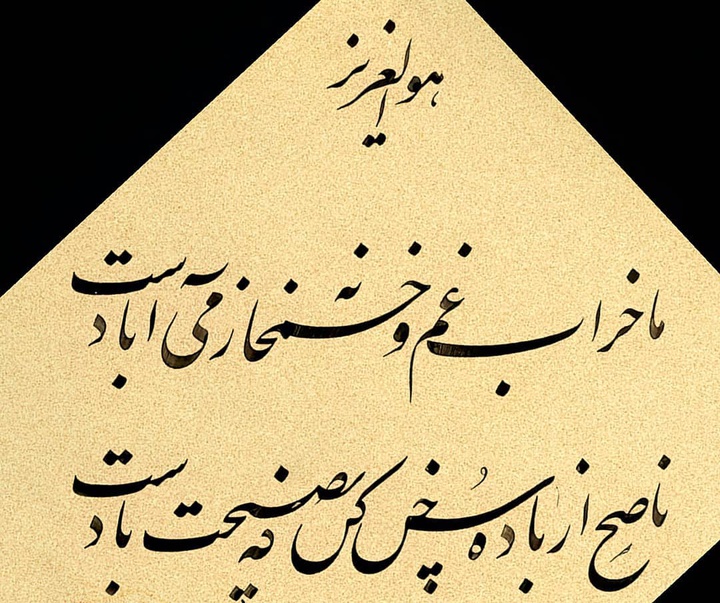 هوالعزیز
ما خراب غم و خمخانه ز می آبادست
ناصح از باده سخن کن که نصیحت بادست